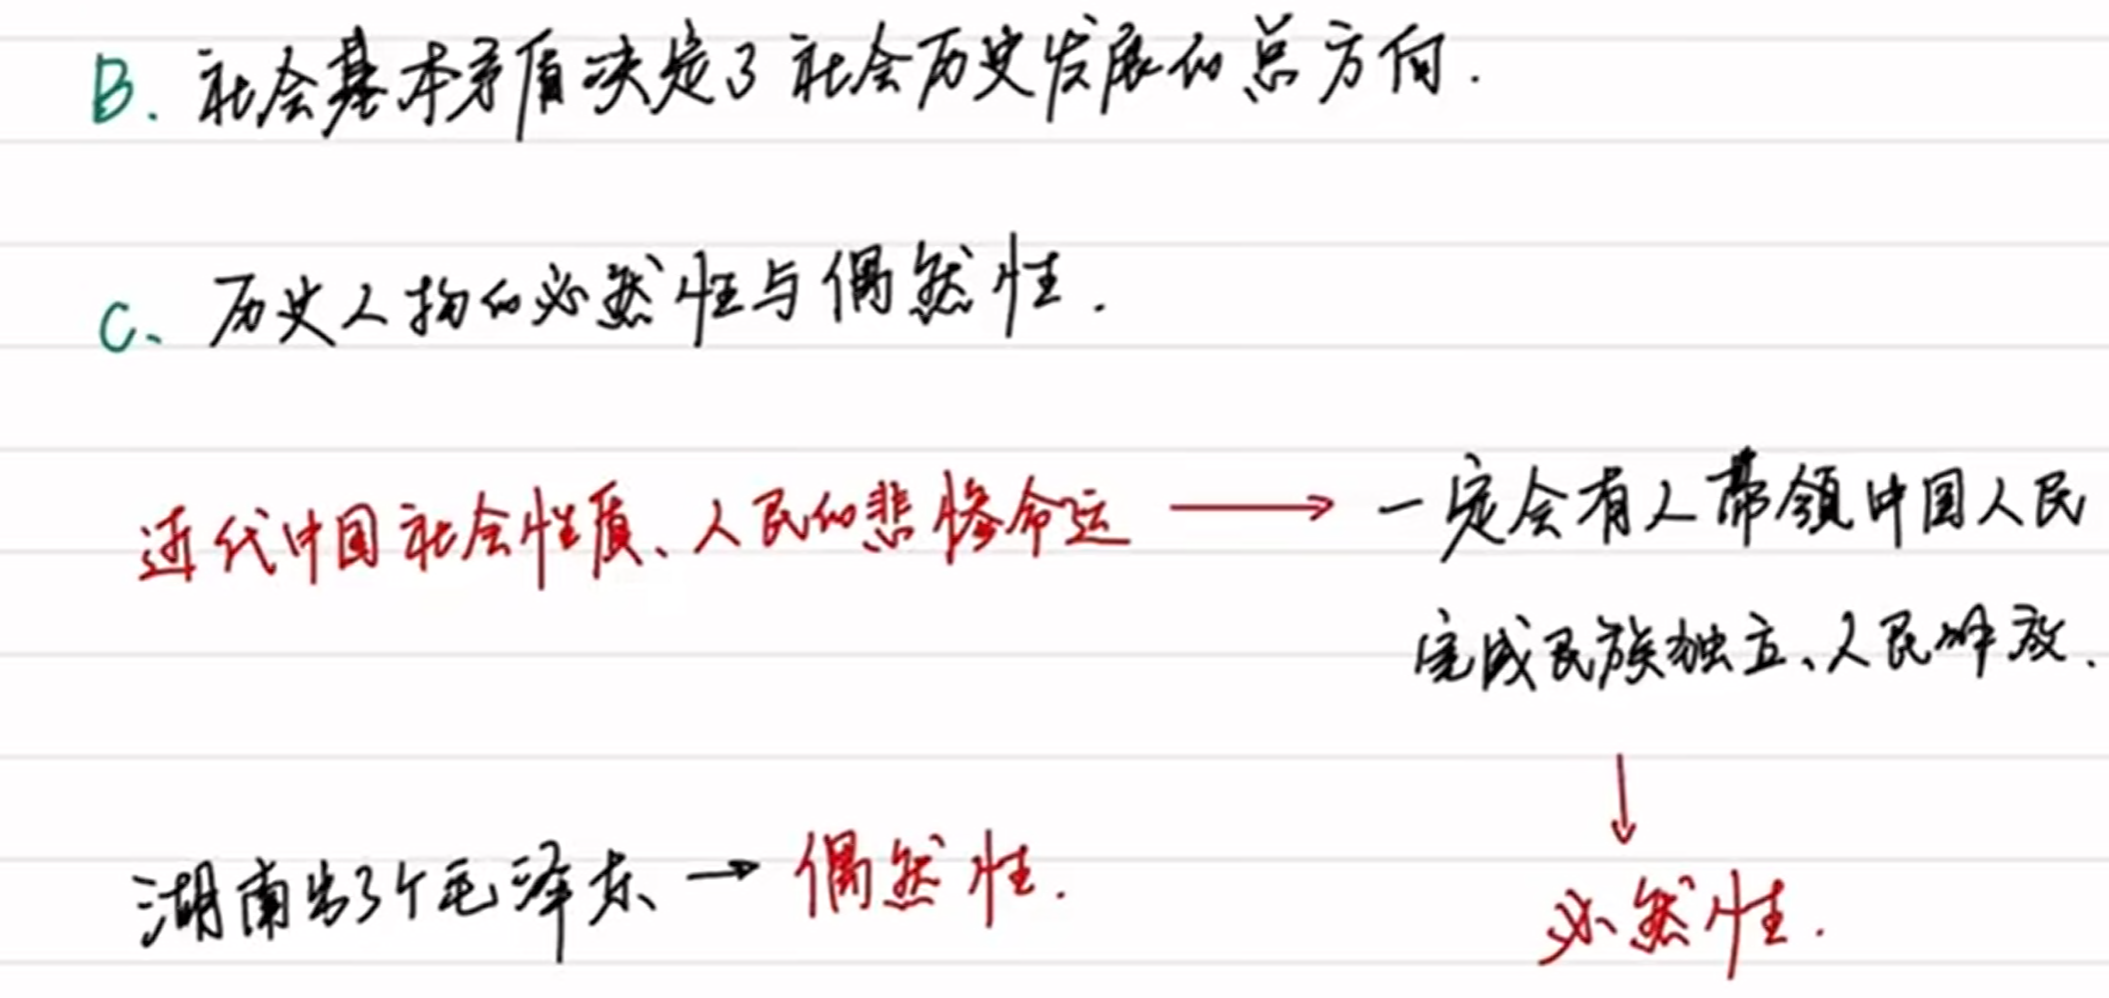 B. 社会基本矛盾决定了社会历史发展的总方向.
C、历史人物的必然性与偶然性.
近代中国社会性质、人民的悲惨命运 → 一定会有人带领中国人民
完成民族独立、人民解放.
↓
湖南出了个毛泽东 → 偶然性.
必然性.